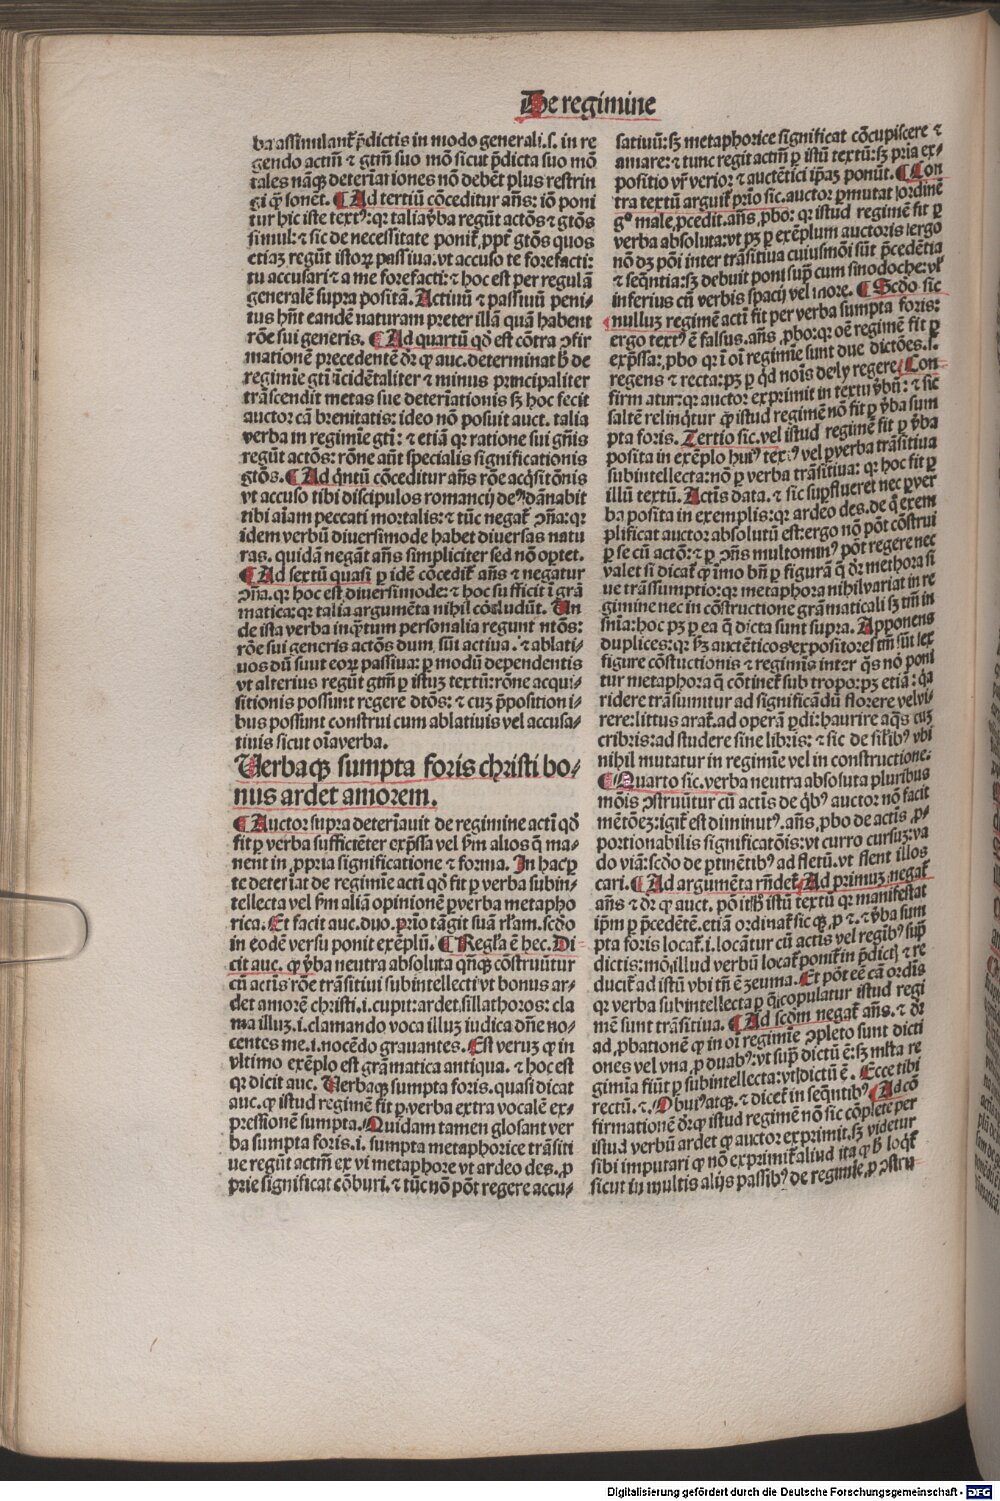 De regimine
ba assimilant᷑ p̄dictis in modo generali.s. in re
gendo actm̄ ⁊ gtm̄ suo mō sicut p̄dicta suo mō
tales nāqꝫ deter̄iationes nō debēt plus restrin
gi qꝫ sonēt. ¶ Ad tertiū cōceditur an̄s: iō poni
tur hic iste textꝰ: qꝛ talia v̄ba regūt actōs ⁊ gtōs
simul: ⁊ sic de necessitate ponit᷑ ꝓpt᷑ gtōs quos
etiaꝫ regūt istoꝝ passiua. vt accuso te forefacti:
tu accusari⁊ a me forefacti: ⁊ hoc est per regulā
generalē supra positā. Actiuū ⁊ passiuū peni⸗
tus hn̄t eandē naturam preter illā quā habent
rōe sui generis. ¶ Ad quartū qd̄ est cōtra ꝯfir
mationē precedentē dr̄ ꝙ auc. determinat h̄ de
regimīe gti īcidētaliter ⁊ minus principaliter
trāscendit metas sue deter̄iationis sꝫ hoc fecit
auctor cā breuitatis: ideo nō posuit auct. talia
verba in regimīe gti: ⁊ etiā qꝛ ratione sui gn̄is
regūt actōs: rōne aūt specialis significationis
gtōs. ¶ Ad qn̄tū cōceditur an̄s rōe acq̄sitōnis
vt accuso tibi discipulos romancij deꝰ dānabit
tibi aīam peccati mortalis: ⁊ tūc negat᷑ ꝯn̄a: qꝛ
idem verbū diuersimode habet diuersas natu
ras. quidā negāt an̄s simpliciter sed nō oꝑtet.
¶ Ad sextū quasi ꝑ idē cōcedit᷑ an̄s ⁊ negatur
ꝯn̄a. qꝛ hoc est diuersimode: ⁊ hoc sufficit ī grā
matica: qꝛ talia argumēta nihil cōcludūt. Un
de ista verba inqꝫtum personalia regunt ntōs:
rōe sui generis actōs dum sūt actiua. ⁊ ablati⸗
uos dū sunt eoꝝ passiua: ꝑ modū dependentis
vt alterius regūt gtm̄ ꝑ istuꝫ textū: rōne acqui⸗
sitionis possunt regere dtōs: ⁊ cuꝫ p̄position i⸗
bus possunt construi cum ablatiuis vel accusa⸗
tiuis sicut oīa verba.
Verbaqꝫ sumpta foris christi bo⸗
nus ardet amorem.
¶ Auctor supra deter̄iauit de regimine acti qd̄
fit ꝑ verba sufficiēter exp̄ssa vel ẜm alios q̄ ma⸗
nent in ꝓpria significatione ⁊ forma. In hac ꝑ
te deter̄iat de regimīe acti qd̄ fit ꝑ verba subin⸗
tellecta vel ẜm aliā opinionē ꝑ verba metapho
rica. Et facit auc. duo. prio tāgit suā rl̄am. scdō
in eodē versu ponit exēplū. ¶ Regl̄a ē hec. Di
cit auc. ꝙ v̄ba neutra absoluta qn̄qꝫ cōstruūtur
cū actis rōe trāsitiui subintellecti vt bonus ar⸗
det amorē christi.i. cupit: ardet sillathoros: cla
ma illuꝫ.i. clamando voca illuꝫ iudica dn̄e no⸗
centes me.i. nocēdo grauantes. Est veruꝫ ꝙ in
vltimo exēplo est grāmatica antiqua. ⁊ hoc est
qꝛ dicit auc. Verbaqꝫ sumpta foris. quasi dicat
auc. ꝙ istud regimē fit ꝑ verba extra vocalē ex⸗
pressionē sumpta. Quidam tamen glosant ver
ba sumpta foris.i. sumpta metaphorice trāsiti
ue regūt actm̄ ex vi metaphore vt ardeo des. ꝓ
prie significat cōburi. ⁊ tūc nō pōt regere accu⸗
satiuū: sꝫ metaphorice significat cōcupiscere ⁊
amare: ⁊ tunc regit actm̄ ꝑ istū textū: sꝫ pria ex⸗
positio vr̄ verior ⁊ auctētici ip̄aꝫ ponūt. ¶ Con
tra textū arguit᷑ prio sic. auctor ꝑmutat ordinē
gͦ male ꝓcedit. an̄s ꝓbo: qꝛ istud regimē fit ꝑ
verba absoluta: vt pꝫ ꝑ exēplum auctoris ergo
nō dꝫ pōi inter trāsitiua cuiusmōi sūt p̄cedētia
⁊ seqn̄tia: sꝫ debuit poni sup̄ cum sinodoche: vl̓
inferius cū verbis spacij vel more. ¶ Scdō sic
nulluꝫ regimē acti fit per verba sumpta foris:
ergo textꝰ ē falsus. an̄s ꝓbo: qꝛ oē regimē fit ꝑ
exp̄ssa: ꝓbo qꝛ ī oī regimīe sunt due dictōes.s.
regens ⁊ recta: pꝫ ꝑ qͥd noīs de ly regere. Con
firmatur: qꝛ auctor exprimit in textu v̄bū: ⁊ sic
saltē relinq̄tur ꝙ istud regimē nō fit ꝑ v̄ba sum
pta foris. Tertio sic. vel istud regimē fit ꝑ v̄ba
posita in exēplo huiꝰ texꝰ vel ꝑ verba trāsitiua
subintellecta: nō ꝑ verba trāsitiua: qꝛ hoc fit ꝑ
illū textū. Actis data. ⁊ sic suꝑflueret nec ꝑ ver
ba posita in exemplis: qꝛ ardeo des. de q̄ exem
plificat auctor absolutū est: ergo nō pōt cōstrui
ꝑ se cū actō: ⁊ ꝑ ꝯn̄s multominꝰ pōt regere nec
valet si dicat᷑ ꝙ imo bn̄ ꝑ figurā q̄ dr̄ methora si
ue trāssumptio: qꝛ metaphora nihil variat in re
gimine nec in cōstructione grāmaticali sꝫ tm̄ in
sn̄ia: hoc pꝫ ꝑ ea q̄ dicta sunt supra. Apponens
duplices: qꝛ ẜm auctēticos expositores tm̄ sūt sex
figure cōstuctionis ⁊ regimīs inter q̄s nō poni
tur metaphora q̄ cōtinet᷑ sub tropo: pꝫ etiā: qꝛ
ridere trāsumitur ad significādū florere vel vi⸗
rere: littus arat᷑. ad operā ꝑdi: haurire aq̄s cuꝫ
cribris: ad studere sine libris: ⁊ sic de sil̓ibꝰ vbi
nihil mutatur in regimīe vel in constructione.
¶ Quarto sic. verba neutra absoluta pluribus
mōis ꝯstruūtur cū actis de qͥbꝰ auctor nō facit
mētōeꝫ: igit᷑ est diminutꝰ. an̄s ꝓbo de actis ꝓ⸗
portionabilis significatōis: vt curro cursuꝫ: va
do viā: scdō de ꝑtinētibꝰ ad fletū. vt flent illos
cari. ¶ Ad argumēta rn̄det᷑. Ad primuꝫ negat᷑
an̄s ⁊ dr̄ ꝙ auct. pōit h̓ istū textū qꝛ manifestat
ip̄m ꝑ p̄cedētē. etiā ordinat᷑ sic qꝫ. ꝑ ⁊. ⁊ v̄ba sum
pta foris locat᷑.i. locātur cū actis vel regibꝰ sup̄
dictis: mō illud verbū locat᷑ ponit᷑ in p̄dict᷑ ⁊ re
ducit᷑ ad istū vbi tn̄ ē zeuma. Et pōt eē cā ordīs
qꝛ verba subintellecta ꝑ q̄ copulatur istud regi
mē sunt trāsitiua. ¶ Ad scdm̄ negat᷑ an̄s. ⁊ dr̄
ad ꝓbationē ꝙ in oī regimīe ꝯpleto sunt dicti
ones vel vna ꝓ duabꝰ: vt sup̄ dictū ē: sꝫ ml̓ta re
gimīa fiūt ꝑ subintellecta: vt dictū ē. Ecce tibi
rectū. ⁊. Obuiꝰ atqꝫ. ⁊ dicet᷑ in seqn̄tibꝰ. ¶ Ad cō
firmationē dr̄ ꝙ istud regimē nō sic cōplete per
istud verbū ardet ꝙ auctor exprimit. sꝫ videtur
sibi imputari ꝙ nō exprimit᷑ aliud ita ꝙ h̓ loqt᷑
sicut in multis alijs passibꝰ de regimīe ꝓ ꝯstru
Digitalisierung gefördert durch die Deutsche Forschungsgemeinschaft - DFG